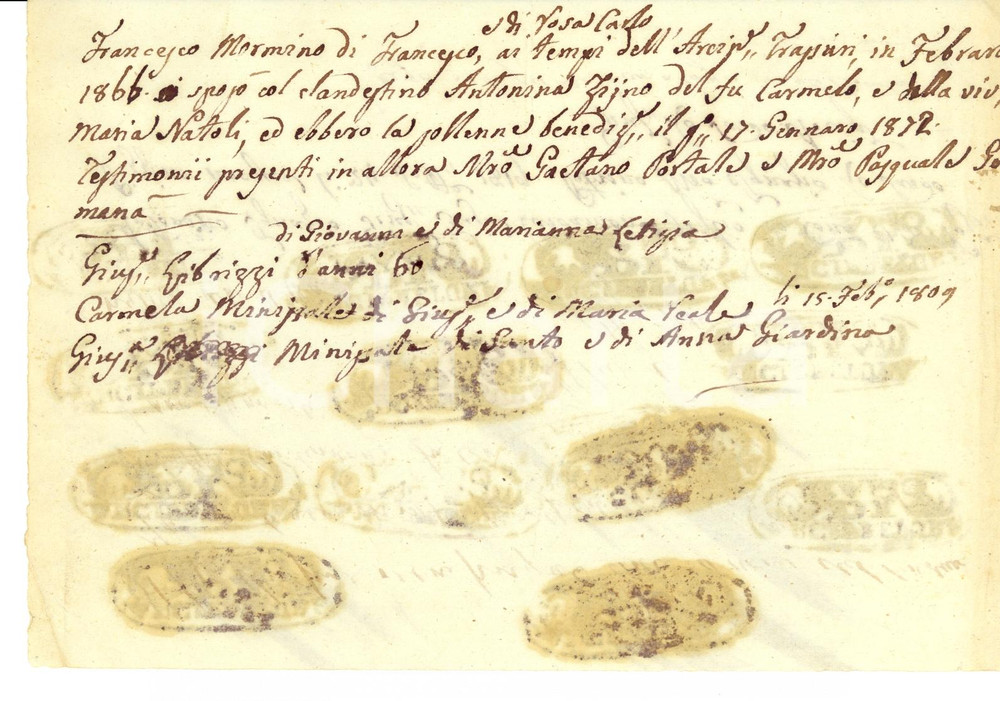 e di Rosa Carlo
Francesco Mormino di Francesco, ai tempi dell' Arcip.,, Trassari, in Febraro
1866. si sposò col clandestino Antonina Zijno del fu Carmelo, e della viv
Maria Natoli, ed ebbero la sollenne benediz.,, il 17. Gennaro 1872.
Testimonii presenti in allora Mro Gaetano Portale e Mro Pasquale Ge
manà
di Giovanni e di Marianna Letizia
Gius.,, Librizzi d'anni 60
Carmela Minissale di Gius.,, e di Maria Reale li 15. Feb.o 1809
Gius.,, Minissale di Santo e di Anna Giardina